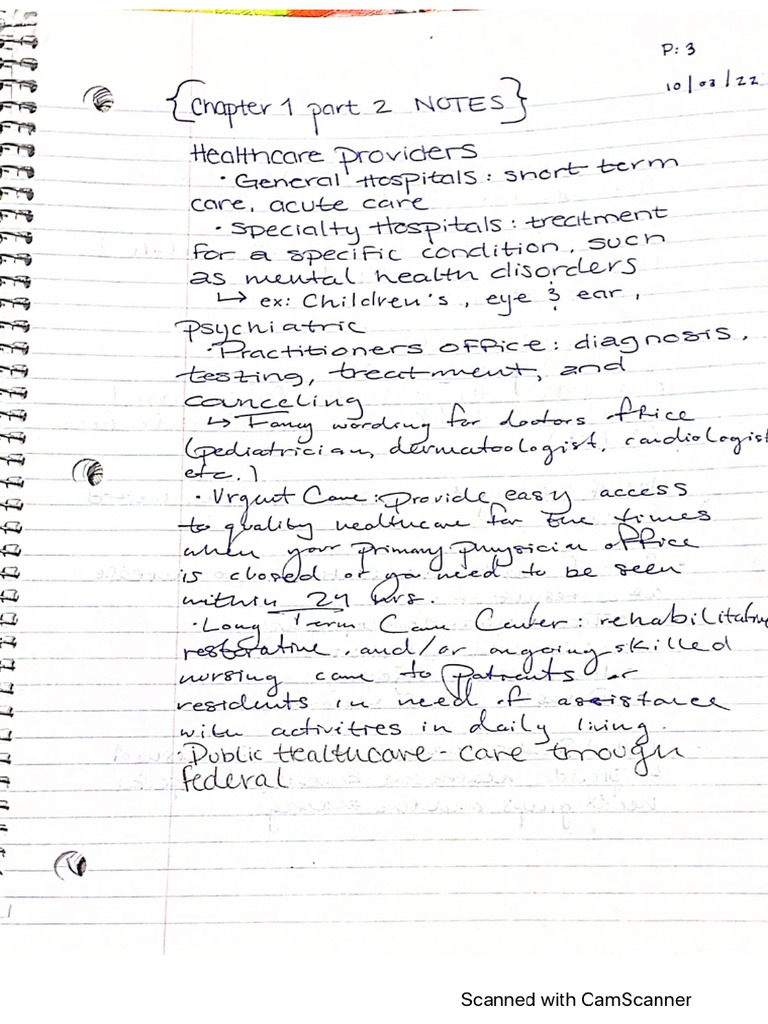 P: 3
10/03/22
{Chapter 1 part 2 NOTES}
Healthcare providers
• General Hospitals: short term
care, acute care
• Specialty Hospitals: treatment
for a specific condition, such
as mental health disorders
↳ ex: Children's, eye & ear,
Psychiatric
• Practitioners office: diagnosis,
testing, treatment, and
counceling
↳ Fancy wording for doctors office
(pediatrician, dermatoologist, cardiologist
etc.)
• Urgent Care: Provide easy access
to quality healthcare for the times
when your primary physician office
is closed or you need to be seen
within 24 hrs.
• Long Term Care Center: rehabilitative
restorative, and/or ongoing skilled
nursing care to patients or
residents in need of assistance
with activities in daily living.
• Public Healthcare - care through
federal
Scanned with CamScanner